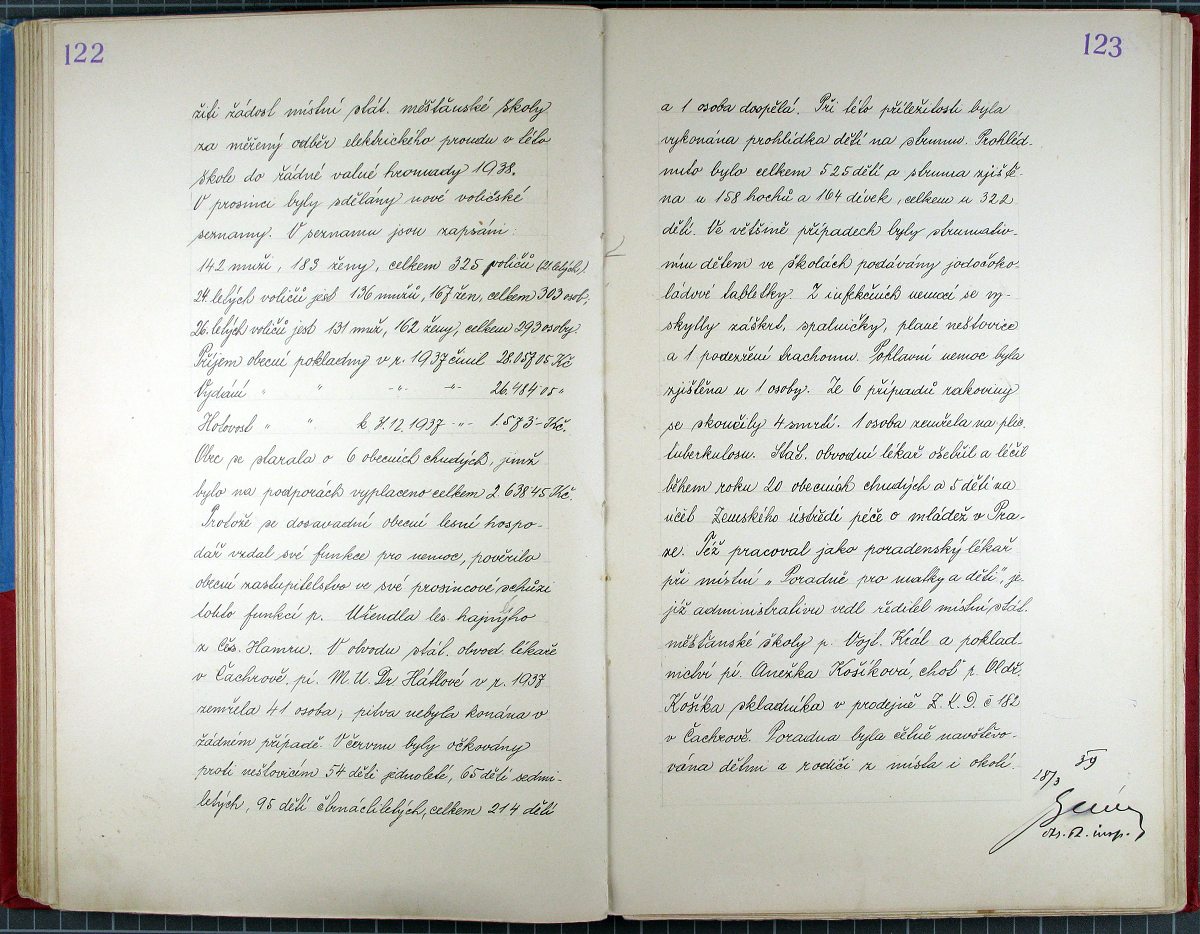 122
žiti žádost místní stát. měšťanské školy
za měřený odběr elektrického proudu v této
škole do řádné valné hromady 1938.
V prosinci byly sdělány nové voličské
seznamy. V seznamu jsou zapsáni:
142 muži, 183 ženy, celkem 325 voličů (21 letých).
24 letých voličů jest 136 mužů, 167 žen, celkem 303 osob,
26. letých voličů jest 131 muž, 162 ženy, celkem 293 osoby.
Příjem obecní pokladny v r. 1937 činil 28.057.05 Kč
Vydání " " -"- -"- 26.484.05 "
Hotovost " " k 31.12.1937 -"- 1.573.- Kč.
Obec se starala o 6 obecních chudých, jimž
bylo na podporách vyplaceno celkem 2.638.45 Kč.
Protože se dosavadní obecní lesní hospo-
dář vzdal své funkce pro nemoc, pověřilo
obecní zastupitelstvo ve své prosincové schůzi
touto funkcí p. Uřendla les. hajného
z Čes. Hamru. V obvodu stát. obvod lékaře
v Čachrově. pí. M.U. Dr Hátlové v r. 1937
zemřela 41 osoba, pitva nebyla konána v
žádném případě. V červnu byly očkovány
proti neštovicím 54 děti jednoleté, 65 dětí sedmi-
letých, 95 dětí čtrnáctiletých, celkem 214 dětí
123
a 1 osoba dospělá. Při této příležitosti byla
vykonána prohlídka dětí na strumu. Prohléd-
nuto bylo celkem 525 dětí a struma zjiště-
na u 158 hochů a 164 dívek, celkem u 322
dětí. Ve většině případech byly strumativ-
ním dětem ve školách podávány jodočoko-
ládové tabletky. Z infekčních nemocí se vy-
skytly záškrt, spalničky, plané neštovice
a 1 podezření trachomu. Pohlavní nemoc byla
zjištěna u 1 osoby. Ze 6 případů rakoviny
se skončily 4 smrtí. 1 osoba zemřela na plic.
tuberkulosu. Stát. obvodní lékař ošetřil a léčil
během roku 20 obecních chudých a 5 dětí na
účet Zemského ústředí péče o mládež v Pra-
ze. Též pracoval jako poradenský lékař
při místní „Poradně pro matky a děti", je-
jíž administrativu vedl ředitel místní stát.
měšťanské školy p. Vojt. Král a poklad-
nictví pí. Anežka Košíková, choť p. Oldř.
Košíka skladníka v prodejně Z.K.D. č 182
v Čachrově. Poradna byla četně navštěvo-
vána dětmi a rodiči z místa i okolí.
18/3 39